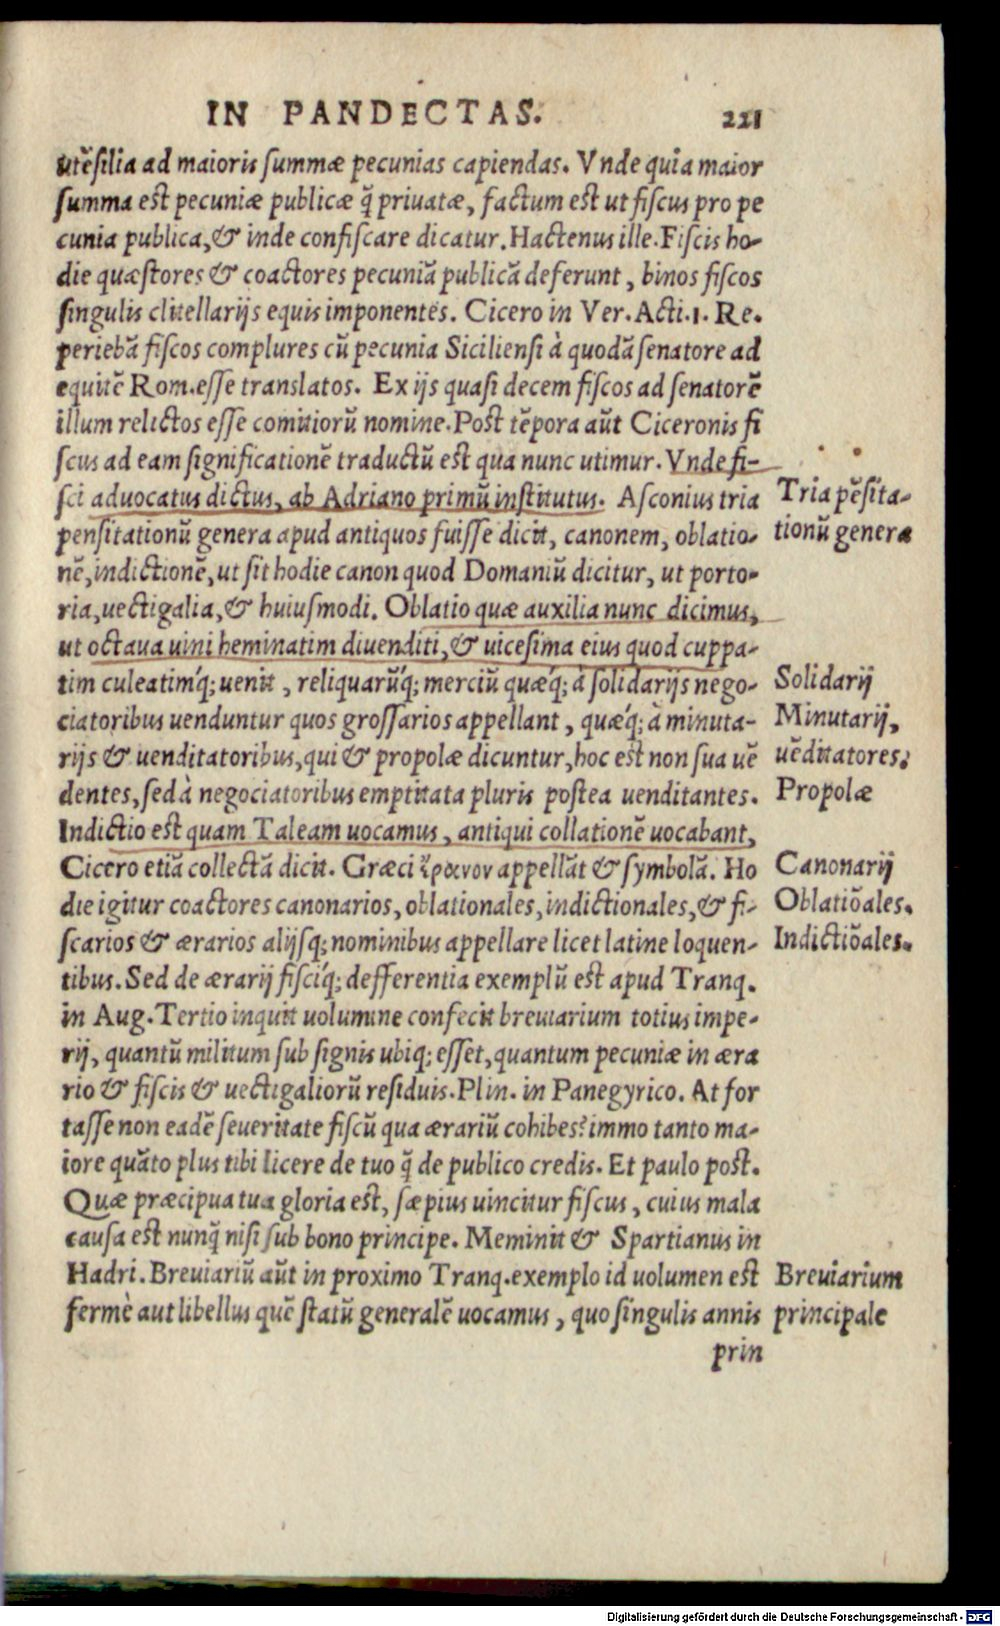 IN PANDECTAS. 221
utēsilia ad maioris summæ pecunias capiendas. Vnde quia maior
summa est pecuniæ publicæ q̃ priuatæ, factum est ut fiscus pro pe
cunia publica, & inde confiscare dicatur. Hactenus ille. Fiscis ho-
die quæstores & coactores pecuniā publicā deferunt, binos fiscos
singulis clitellarijs equis imponentes. Cicero in Ver. Acti. 1. Re.
periebā fiscos complures cū pecunia Siciliensi à quodā senatore ad
equitē Rom. esse translatos. Ex ijs quasi decem fiscos ad senatorē
illum relictos esse comitiorū nomine. Post tēpora aūt Ciceronis fi
scus ad eam significationē traductū est qua nunc utimur. Vnde fi-
sci aduocatus dictus, ab Adriano primū institutus. Asconius tria
Tria pēsita-
pensitationū genera apud antiquos fuisse dicit, canonem, oblatio-
tionū genera
nē, indictionē, ut sit hodie canon quod Domaniū dicitur, ut porto-
ria, uectigalia, & huiusmodi. Oblatio quæ auxilia nunc dicimus,
ut octaua uini heminatim diuenditi, & uicesima eius quod cuppa-
tim culeatimq́; uenit, reliquarūq́; merciū quæq́; à solidarijs nego-
Solidarij
ciatoribus uenduntur quos grossarios appellant, quæq́; à minuta-
Minutarij,
rijs & uenditatoribus, qui & propolæ dicuntur, hoc est non sua uē
uēditatores;
dentes, sed à negociatoribus emptitata pluris postea uenditantes.
Propolæ
Indictio est quam Taleam uocamus, antiqui collationē uocabant,
Cicero etiā collectā dicit. Græci ἔρανον appellāt & symbolā. Ho
Canonarij
die igitur coactores canonarios, oblationales, indictionales, & fi-
Oblatiōales.
scarios & ærarios alijsq; nominibus appellare licet latine loquen-
Indictiōales.
tibus. Sed de ærarij fisciq́; defferentia exemplū est apud Tranq.
in Aug. Tertio inquit uolumine confecit breuiarium totius impe-
rij, quantū militum sub signis ubiq; esset, quantum pecuniæ in æra
rio & fiscis & uectigaliorū residuis. Plin. in Panegyrico. At for
tasse non eadē seueritate fiscū qua ærariū cohibes? immo tanto ma-
iore quāto plus tibi licere de tuo q̃ de publico credis. Et paulo post.
Quæ præcipua tua gloria est, sæpius uincitur fiscus, cuius mala
causa est nunq̃ nisi sub bono principe. Meminit & Spartianus in
Hadri. Breuiariū aūt in proximo Tranq. exemplo id uolumen est
Breuiarium
fermè aut libellus quē statū generalē uocamus, quo singulis annis
principale
prin
Digitalisierung gefördert durch die Deutsche Forschungsgemeinschaft - DFG